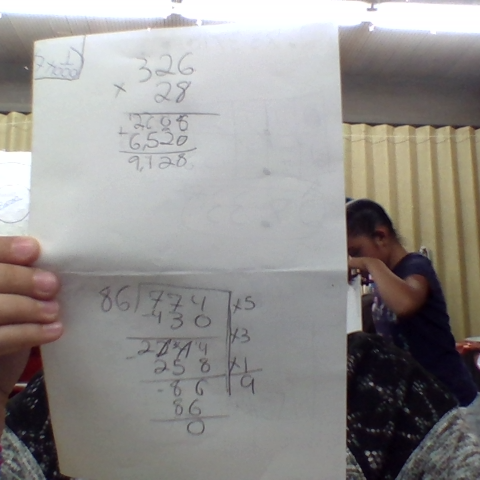 326
× 28
2608
+6,520
9,128
86)774 ×5
430
-344 ×3
258 ×1
-86 9
86
0